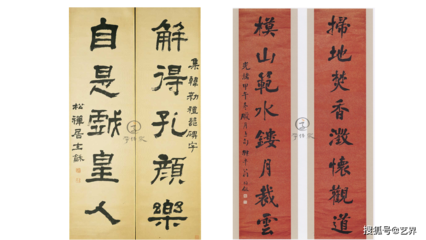 解得孔顏樂
集韓勑禮器碑字
自是戲皇人
松禪居士龢
掃地焚香澂懷觀道
模山範水鏤月裁雲
光緒甲午
搜狐号@艺界